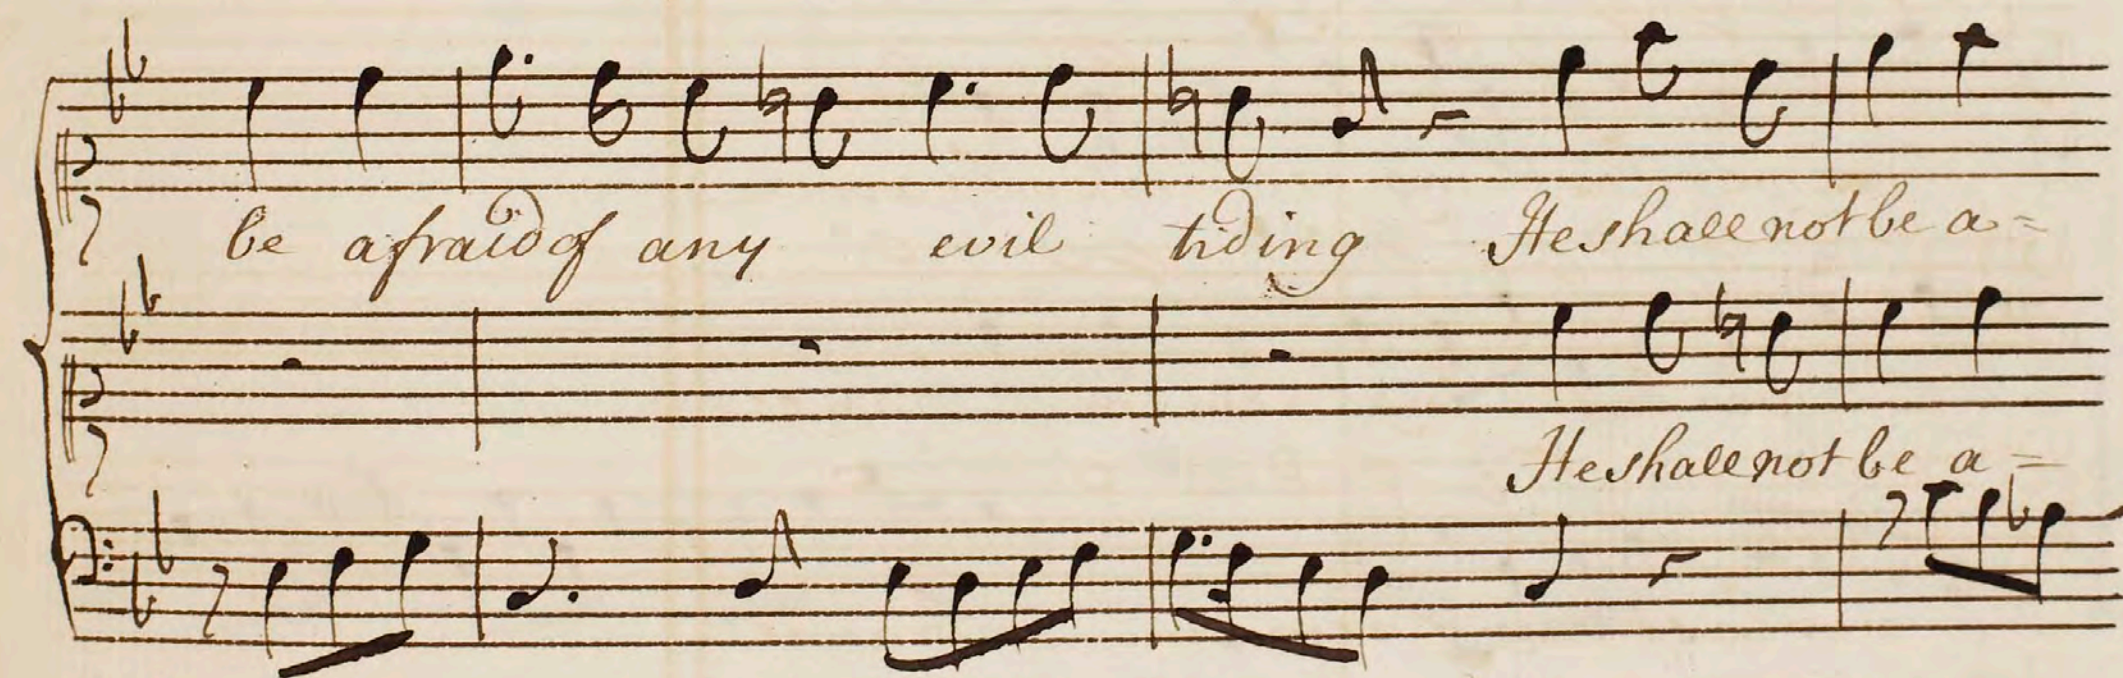 be afraid of any evil tiding He shall not be a=
He shall not be a=